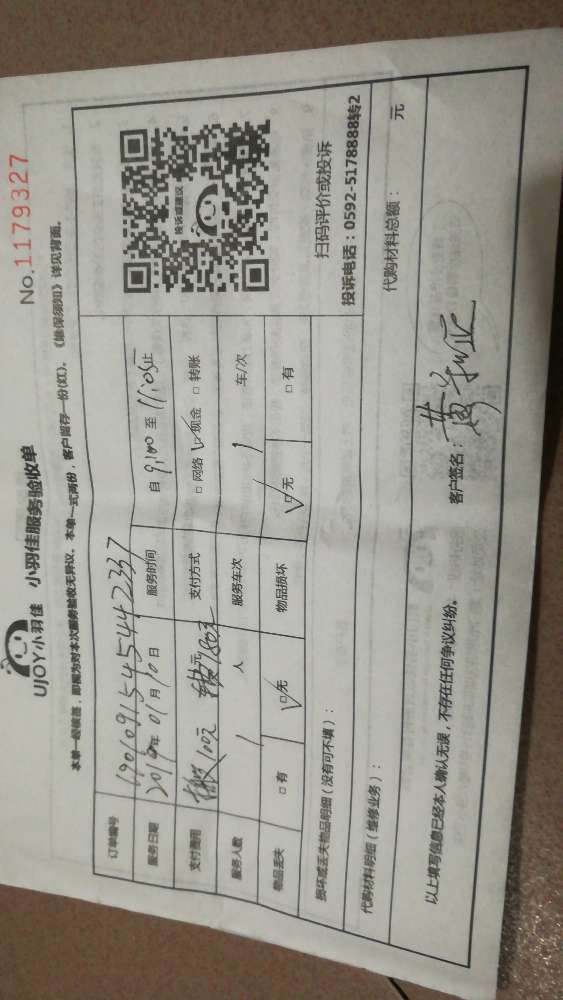 UJOY小羽佳 小羽佳服务验收单
No.1179327
本单一经核签，即视为对本次服务验收无异议。本单一式两份，客户留存一份(红)。《维保须知》详见背面。
订单编号 190109154544 2337
服务日期 2019年01月10日 服务时间 自 9:00 至 11:05止
支付费用 100元 元 180元 支付方式 □ 网络 ☑ 现金 □ 转账
服务人数 1 人 服务车次 1 车/次
物品丢失 □ 有 ☑ 无 物品损坏 ☑ 无 □ 有
投诉或建议
扫码评价或投诉
投诉电话：0592-5178888转2
损坏或丢失物品明细（没有可不填）：
代购材料明细（维修业务）： 代购材料总额： 元
以上填写信息已经本人确认无误，不存在任何争议纠纷。 客户签名：